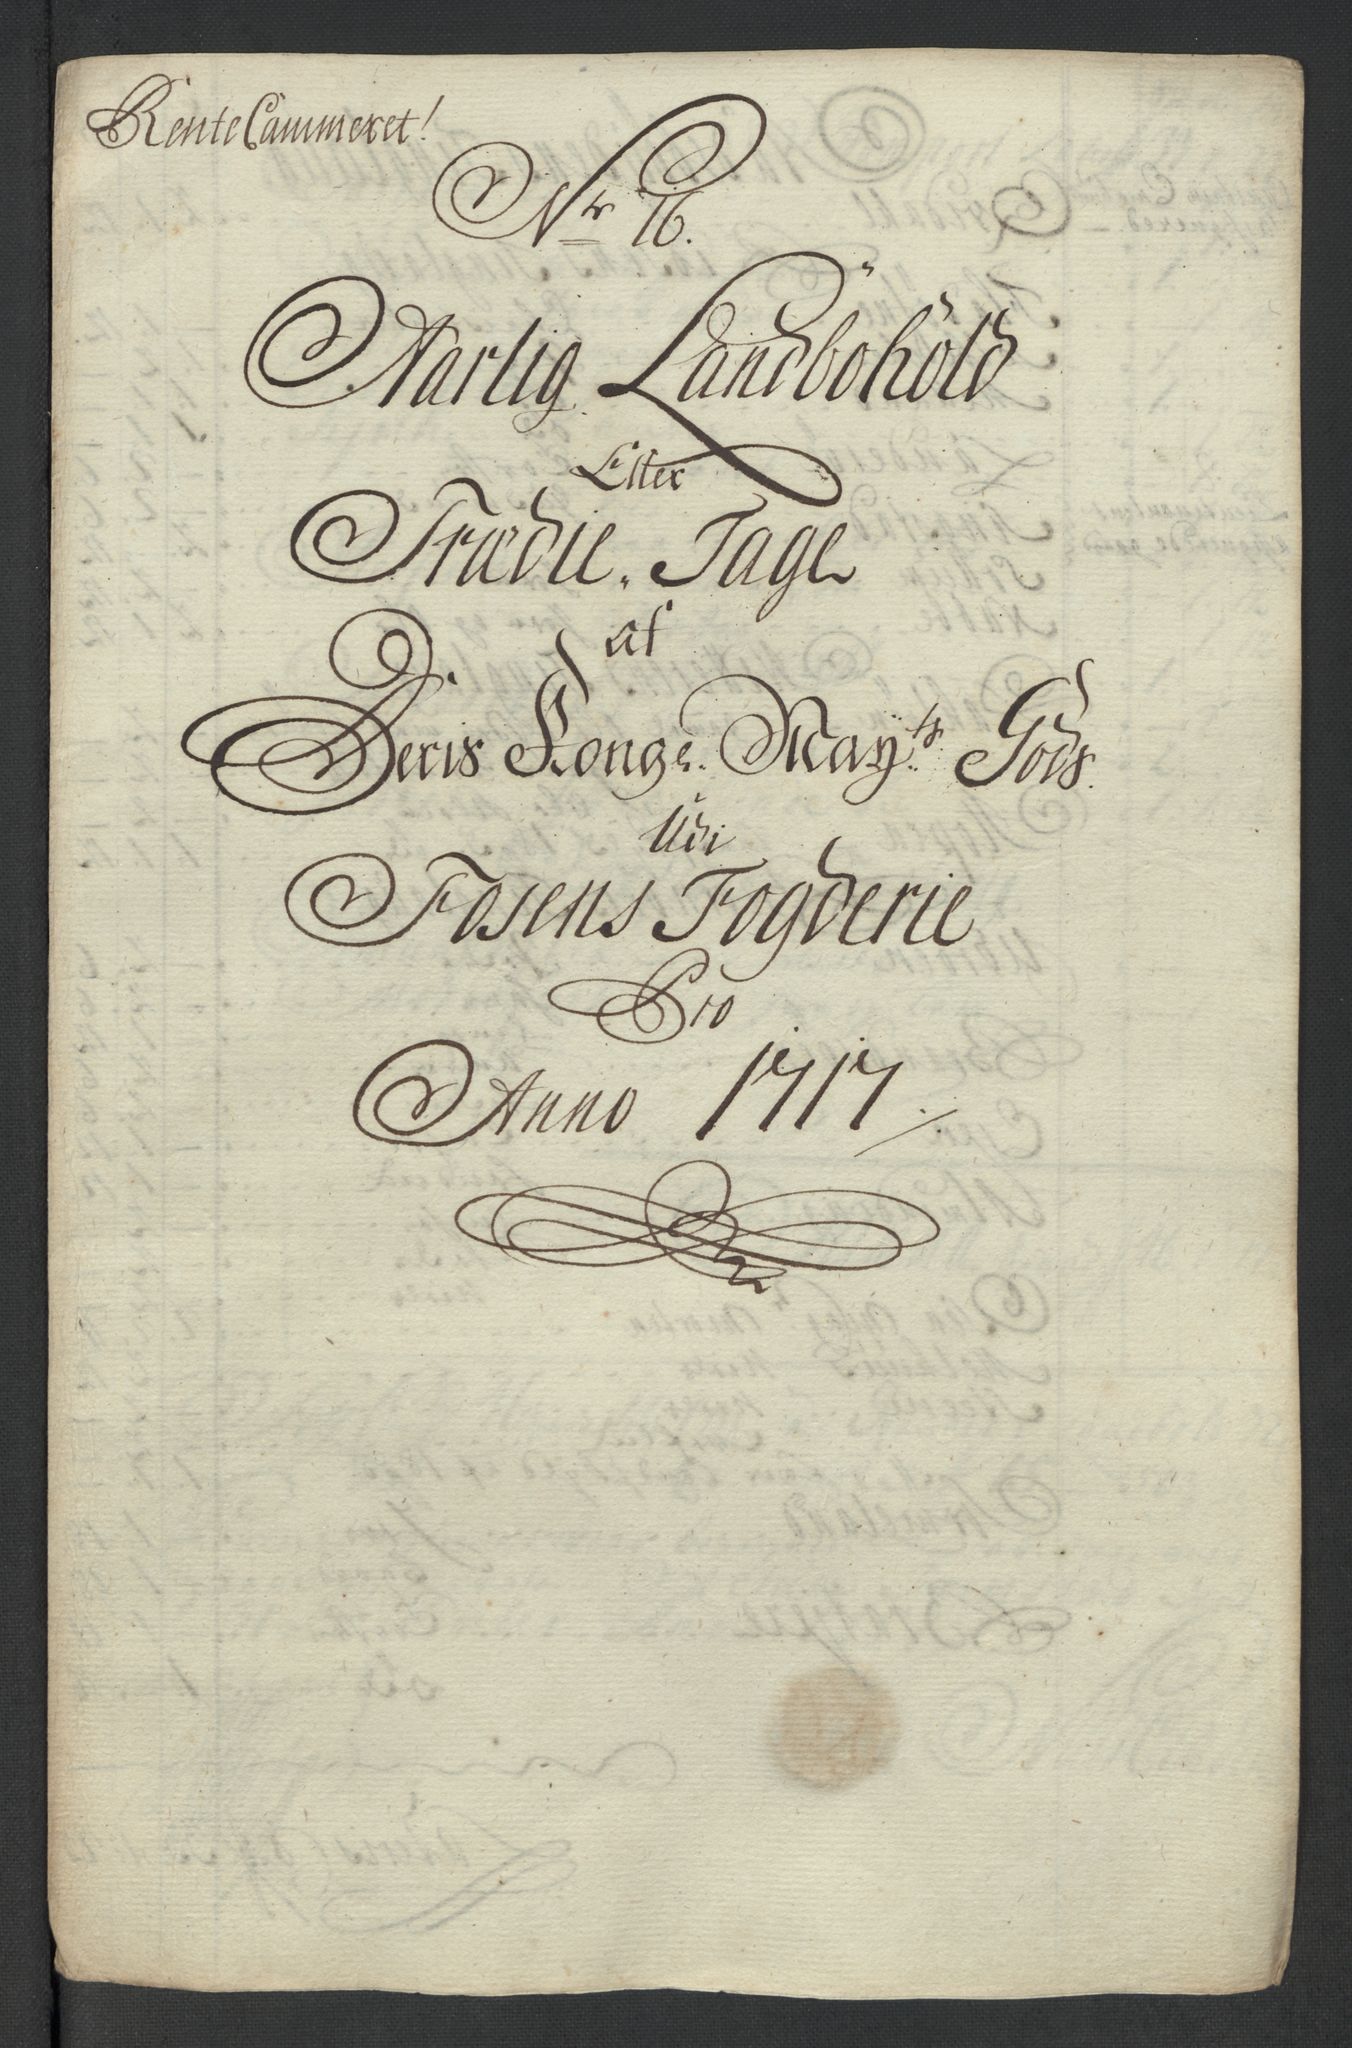 RenteCammeret!
Nr 16.
Aarlig Landbohold
Efter
Trædie Tage
af
Deris Kongl. Mayts. Gods
Udi
Fosens Fogderie
Pro
Anno 1717.